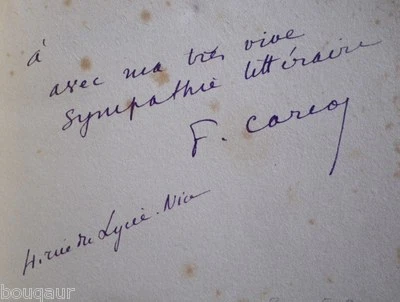 à
avec ma très vive
sympathie littéraire
F. Carco
4. rue du Lycée. Nice
bouqaur